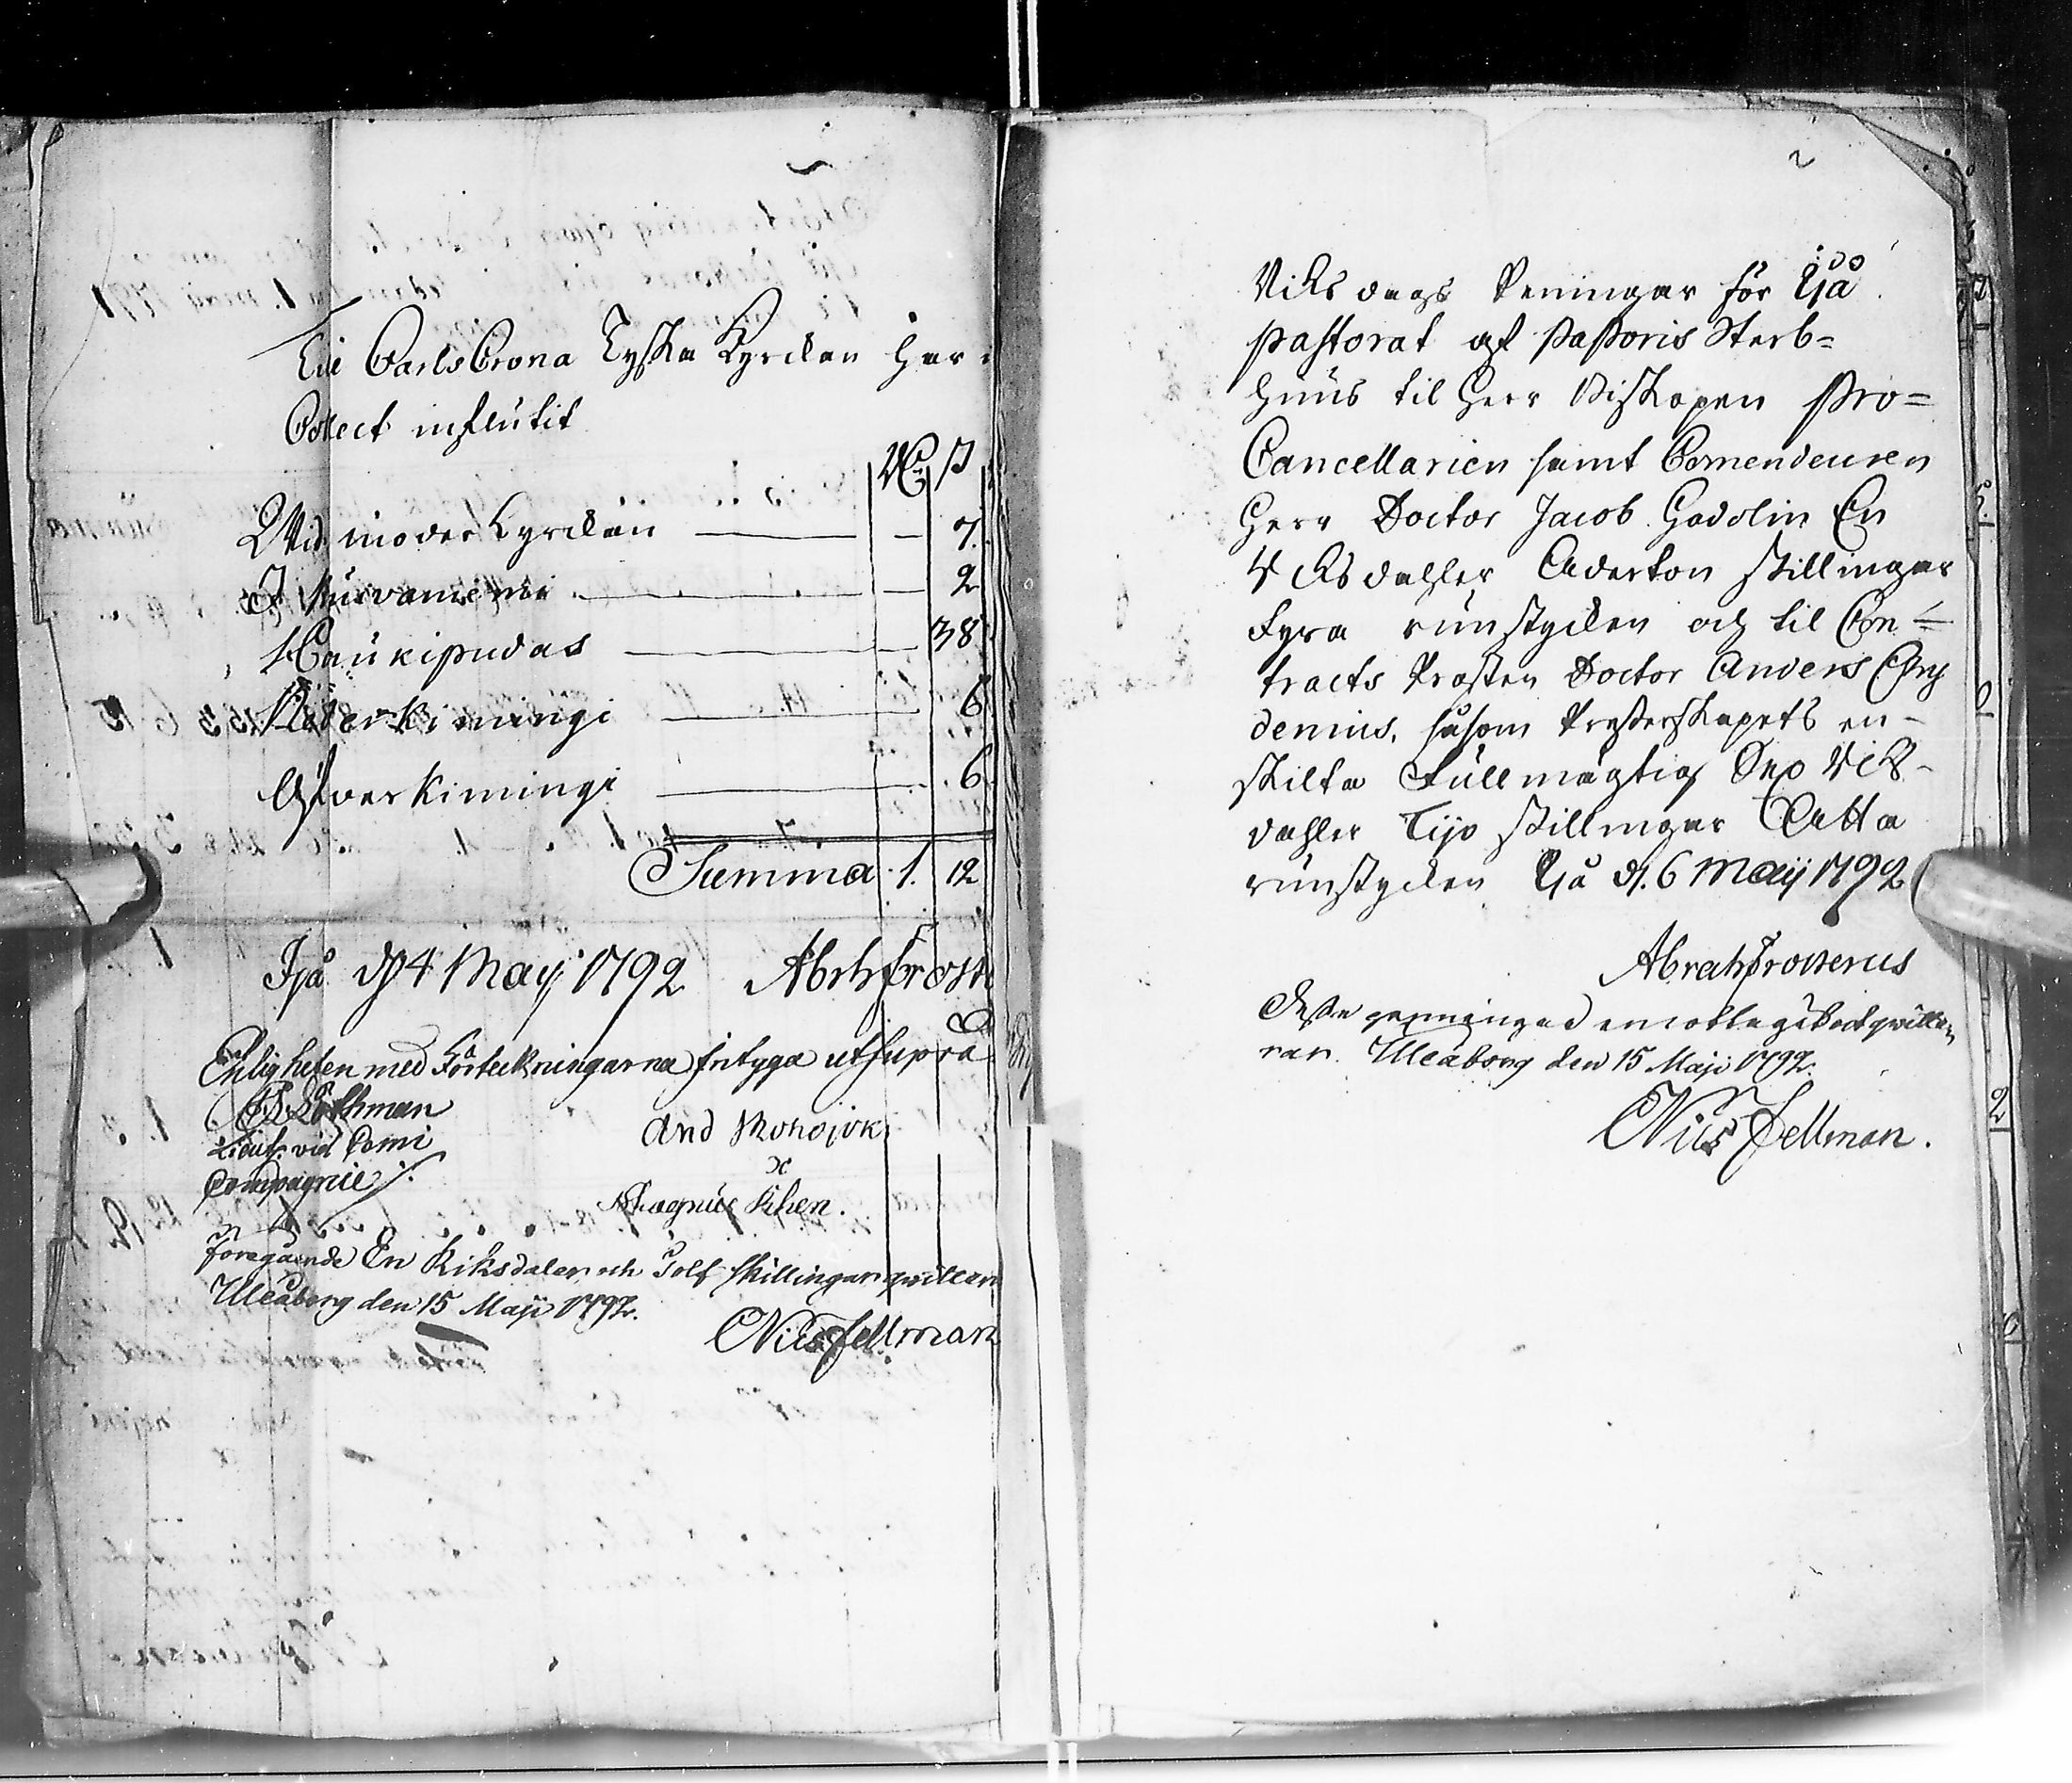 Til CarlsCrona Tyska Kyrckan har
Collect influtit
Rd ß
Wid moder Kyrckan — 7.
I Kuivaniemi — 2
Haukipudas — 38
Nederkimingi — 6
Öfverkimingi — 6.
Summa 1. 12
Ijå d 4 Maij 1792 Abrh Frost
Enligheten med Förteckningarna intyga ut supra
Lieut. vid Kemi
Compagnie
And
Magnus
föregående En Riksdaler och Tolf skillingar quitteras
Uleåborg den 15 Maji 1792.
Nils Fellman
2
Riksdags Penningar för Ijå
Pastorat af Pastoris Sterb=
huus til Herr Biskopen Pro=
Cancellarien samt Comendeuren
Herr Doctor Jacob Gadolin En
Riksdahler Aderton skillingar
Fyra runstycken och til Con=
tracts Prosten Doctor Anders Chy
denius, såsom Presterskapets en-
skilta Fullmägtig Sex Riks-
dahler Tijo skillingar Åtta
runstycken Ijå d. 6 Maij 1792
Abrah Frosterus
Desse penningar emottagit och quitte-
rar. Uleåborg den 15 Maji 1792.
Nils Fellman.